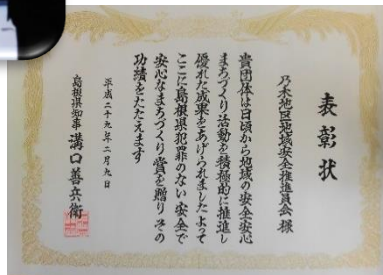 表彰状
乃木地区地域安全推進員会 様
貴団体は日頃から地域の安全安心
まちづくり活動を積極的に推進し
優れた成果をあげられましたよって
ここに島根県犯罪のない安全で
安心なまちづくり賞を贈りその
功績をたたえます
平成二十九年二月九日
島根県知事 溝口善兵衛